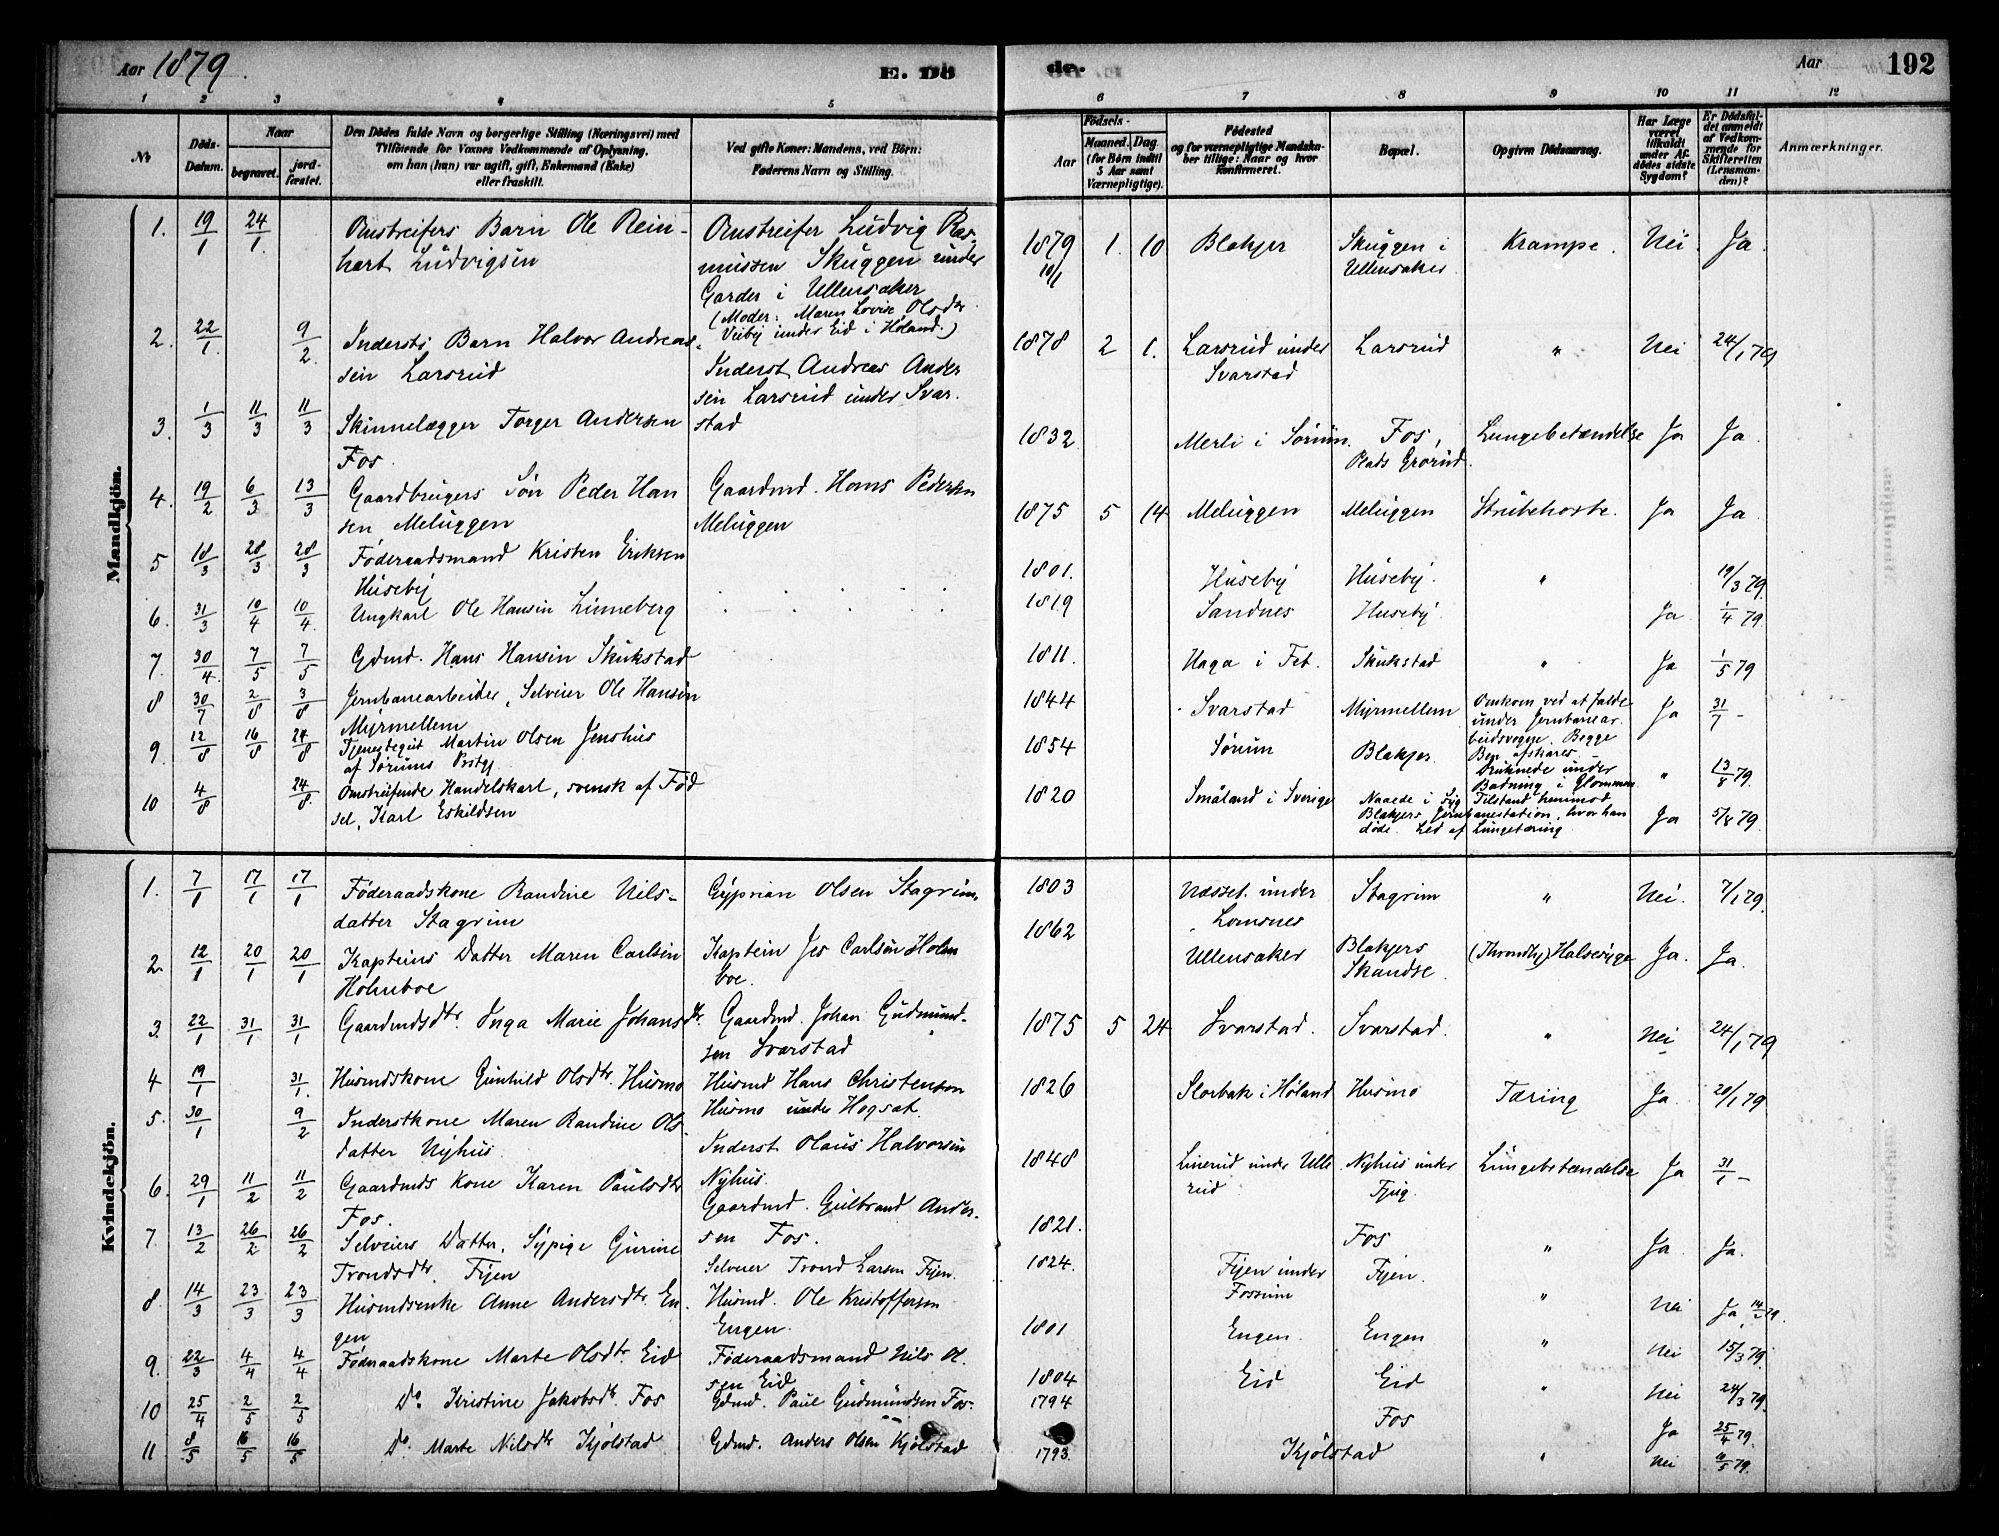 Aar 1879.
E. Dö
de.
Aar
192
1 2 3 4 5
6 7 8 9 10 11 12
No
Döds-Datum.
Naar
begravet.
jordfæstet.
Den Dödes fulde Navn og borgerlige Stilling (Næringsvei) med
Tilföiende for Voxnes Vedkommende af Oplysning,
om han (hun) var ugift, gift, Enkemand (Enke)
eller fraskilt.
Ved gifte Koner: Mandens, ved Börn:
Faderens Navn og Stilling.
Födsels-
Aar
Maaned.
Dag
(for Börn indtil
5 Aar samt
Værnepligtige).
Födested
og for værnepligtige Mandska-
ber tillige: Naar og hvor
konfirmeret.
Bopæl.
Opgiven Dödsaarsag.
Har Læge
været
tilkaldt
under Af-
dödes sidste
Sygdom?
Er Dödsfal-
det anmeldt
af Vedkom-
mende for
Skifteretten
(Lensman-
den)?
Anmærkninger.
Mandkjön.
1. 19/1 24/1 Omstreifers Barn Ole Rein-
hart Ludvigsen
Omstreifer Ludvig Ras-
mussen Skuggen under
Garder i Ullensaker
(Moder: Maren Lovise Olsdtr
Viby under Eid i Høland.)
1879 10/1 1. 10 Blakjer Skuggen i
Ullensaker Krampe. Nei. Ja.
2. 22/1 9/2 Inderts Barn Halvor Andreas-
sen Larsrud
Inderst Andreas Ander
sen Larsrud under Svar-
stad
1878 2 1. Larsrud under
Svarstad Larsrud " Nei 24/1 79
3. 1/3 11/3 11/3 Skinnelægger Torger Andersen
Fos.
1832 Merli i Sørum. Fos,
Plads Grorud. Lungebetændelse Ja Ja.
4. 19/2 6/3 13/3 Gaardbrugers Søn Peder Han
sen Meluggen
Gaardmd. Hans Pedersen
Meluggen
1875 5 14 Meluggen Meluggen Strubehoste. Ja Ja.
5 18/3 28/3 28/3 Føderaadsmand Kristen Eriksen
Huseby
1801. Huseby Huseby. " 19/3 79.
6. 31/3 10/4 10/4 Ungkarl Ole Hansen Linneberg
1819 Sandnes Huseby Ja 1/4 79.
7. 30/4 7/5 7/5 Gdmd. Hans Hansen Skukstad
1811. Haga i Fet. Skukstad " Ja 1/5 79
8 30/7 2/8 3/8 Jernbanearbeider, Selveier Ole Hansen
Myrmellem
1844 Svarstad Myrmellem Omkom ved at falde
under Jernbanear-
beidsvogge. Begge
Ben afskares. Ja 31/7 -
9. 12/8 16/8 24/8 Tjenestegut Martin Olsen Jenshus
af Sørums Prstgj
1854 Sørum Blakjer. Druknede under
Badning i Glommen. " 13/8 79.
10 4/8 24/8. Omstreifende Handelskarl, svensk af Fød
sel, Karl Eskildsen
1820 Småland i Sverige Naaede i syg Tilstand henimod
Blakjers Jernbanestation, hvor han
døde. Led af Lungetæring. Ja 5/8 79.
Kvindekjön.
1. 7/1 17/1 17/1 Føderaadskone Randine Nils-
datter Stagrim
Cyprian Olsen Stagrim.
1803 Næsset under
Lomsnes Stagrim " Nei. 7/1 79.
2. 12/1 20/1 20/1 Kapteins Datter Maren Carlsen
Holmboe
Kaptein Jes Carlsen Holm
boe.
1862 Ullensaker Blakjers
Skandse. (Throndhj) Halsesyge Ja. Ja.
3. 22/1 31/1 31/1 Gaardmdsdtr. Inga Marie Johansdtr.
Gaardmd. Johan Gudmund-
sen Svarstad
1875 5 24 Svarstad. Svarstad. " Nei 24/1 79
4 19/1 31/1. Husmdskone Gunhild Olsdtr. Husmo
Husmd Hans Christensen
Husmo under Hogsæt.
1826 Slorbak i Høland Husmo Tæring Ja. 20/1 79
5. 30/1 9/2 Inderstkone Maren Randine Ols-
datter Nyhus
Inderst Olaus Halvorsen
Nyhus.
1848 Linerud under Ulle
rud Nyhus under
Fjug. Lungebetændelse Ja 31/1 -
6. 29/1 11/2 11/2 Gaardmds Kone Karen Paulsdtr
Fos.
Gaardmd. Gulbrand Ander-
sen Fos.
1821. Fos " Ja. Ja.
7. 13/2 26/2 26/2 Selveiers Datter, Sypige Gurine
Trondsdtr. Fijen
Selveier Trond Larsen Fijen.
1824. Fijen under
Fossum Fijen. " Nei Ja, 14/2 79.
8. 14/3 23/3 23/3 Husmdsenke Anne Andersdtr. En-
gen
Husmd. Ole Kristoffersen
Engen.
1801 Engen. Engen " Nei 15/3 79.
9. 22/3 4/4 4/4 Føderaadskone Marte Olsdtr. Eid
Føderaadsmand Nils Ol-
sen Eid
1804 Eid Eid " Nei 24/3 79.
10 25/4 2/5 2/5 Do Kristine Jakobsdtr. Fos
Gdmd. Paul Gudmundsen Fos.
1794 Fos Ja 25/4 79.
11 8/5 16/5 16/5 Do. Marte Nilsdtr Kjølstad
Gdmd. Anders Olsen Kjølstad
1793. Kjølstad " Nei 11/5 79.